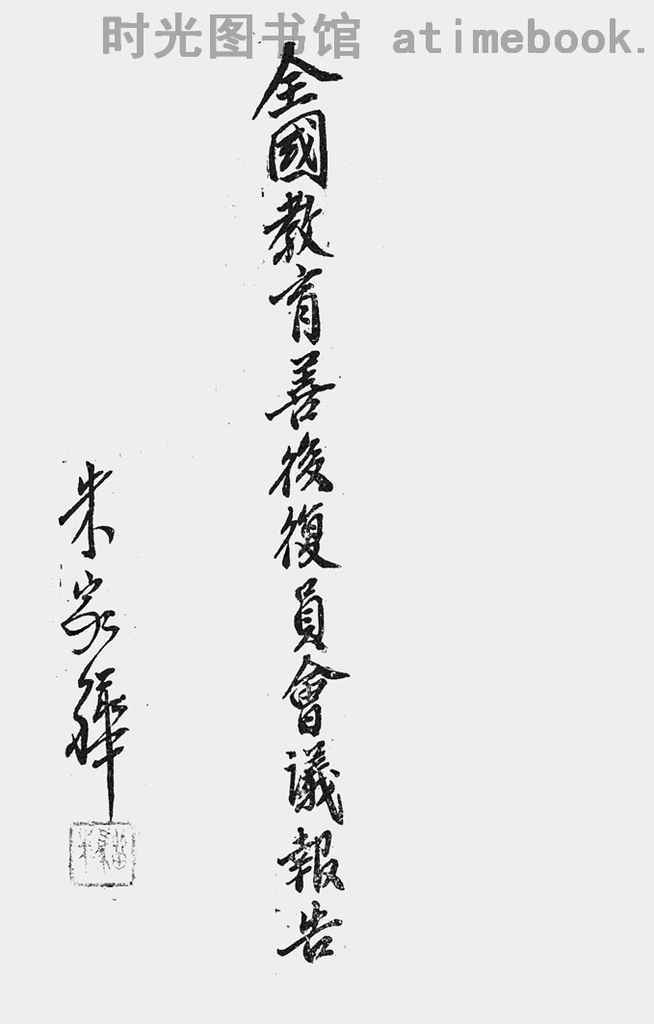 时光图书馆 atimebook.
全國教育善後復員會議報告
朱家驊